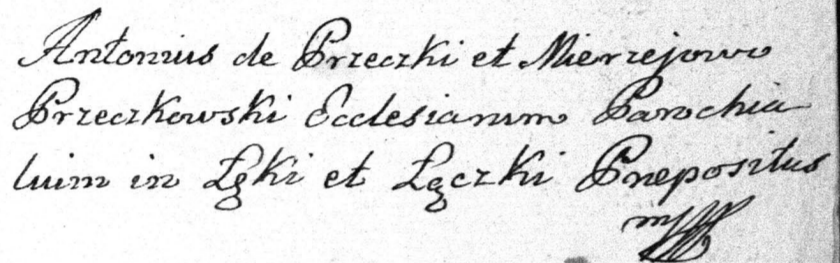 Antonius de Przeczki et Mierzejowo
Przeczkowski Ecclesiarum Parochia
luim in Łęki et Łączki Prepositus
mp